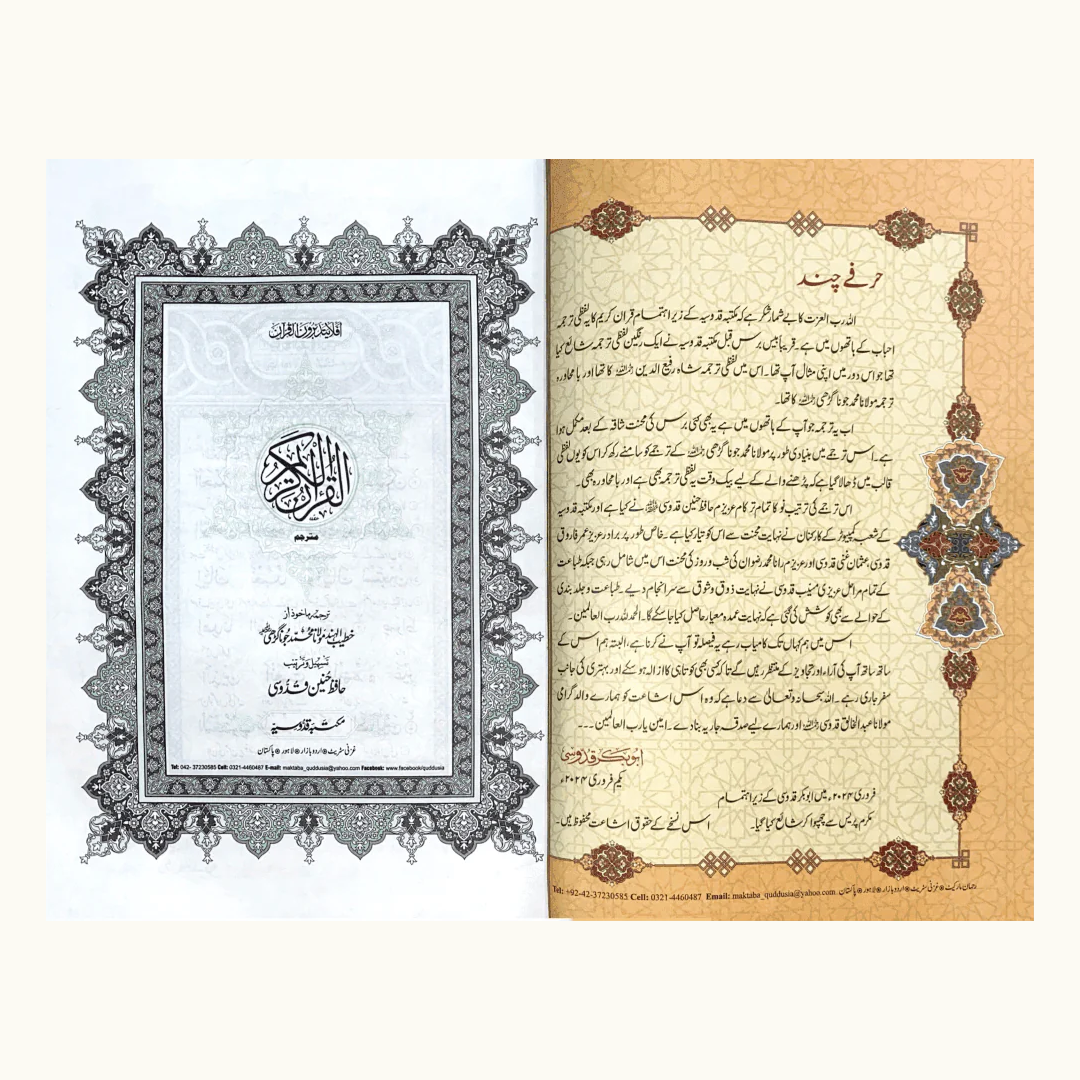 حرفے چند
اللہ رب العزت کا بے شمار شکر ہے کہ مکتبہ قدوسیہ کے زیر اہتمام قرآن کریم کا یہ لفظی ترجمہ
احباب کے ہاتھوں میں ہے۔ قریباً بیس برس قبل مکتبہ قدوسیہ نے ایک رنگین لفظی ترجمہ شائع کیا
تھا جو اس دور میں اپنی مثال آپ تھا۔ اس میں لفظی ترجمہ شاہ رفیع الدین رحمہ اللہ کا تھا اور بامحاورہ
ترجمہ مولانا محمد جونا گڑھی رحمہ اللہ کا تھا۔
اب یہ ترجمہ جو آپ کے ہاتھوں میں ہے یہ بھی کئی برس کی محنت شاقہ کے بعد مکمل ہوا
ہے۔ اس ترجمے میں بنیادی طور پر مولانا محمد جونا گڑھی رحمہ اللہ کے ترجمے کو سامنے رکھ کر اس کو یوں لفظی
قالب میں ڈھالا گیا ہے کہ پڑھنے والے کے لیے بیک وقت یہ لفظی ترجمہ بھی ہے اور بامحاورہ بھی۔
اس ترجمے کی ترتیب نو کا تمام تر کام عزیزم حافظ حنین قدوسی نے کیا ہے اور مکتبہ قدوسیہ
کے شعبہ کمپیوٹر کے کارکنان نے نہایت محنت سے اس کو تیار کیا ہے۔ خاص طور پر برادر عزیز عمر فاروق
قدوسی، عثمان غنی قدوسی اور عزیزم رانا محمد رضوان کی شب و روز کی محنت اس میں شامل رہی جبکہ طباعت
کے تمام مراحل عزیزی منیب قدوسی نے نہایت ذوق و شوق سے سرانجام دیے۔ طباعت و جلد بندی
کے حوالے سے بھی کوشش کی گئی ہے کہ نہایت عمدہ معیار حاصل کیا جا سکے گا۔ الحمد للہ رب العالمین۔
اس میں ہم کہاں تک کامیاب رہے یہ فیصلہ تو آپ نے کرنا ہے، البتہ ہم اس کے
ساتھ ساتھ آپ کی آراء اور تجاویز کے منتظر ہیں گے تا کہ کسی بھی کوتاہی کا ازالہ ہو سکے اور بہتری کی جانب
سفر جاری رہے۔ اللہ سبحانہ وتعالیٰ سے دعا ہے کہ وہ اس اشاعت کو ہمارے والد گرامی
مولانا عبدالخالق قدوسی رحمہ اللہ اور ہمارے لیے صدقہ جاریہ بنا دے۔ امین یارب العالمین ۔۔۔
ابوبکر قدوسی
یکم فروری ۲۰۲۴ء
فروری ۲۰۲۴ء میں ابوبکر قدوسی کے زیر اہتمام
مکرم پریس سے چھپوا کر شائع کیا گیا۔ اس نسخے کے حقوق اشاعت محفوظ ہیں۔
رحمان مارکیٹ ● غزنی سٹریٹ ● اردو بازار ● لاہور ● پاکستان Tel: +92-42-37230585 Cell: 0321-4460487 Email: maktaba_quddusia@yahoo.com
افلا یتدبرون القرآن
القرآن الکریم
مترجم
ترجمہ ماخوذ از
خطیب الہند مولانا محمد جونا گڑھی رحمہ اللہ
تسہیل و ترتیب
حافظ حنین قدوسی
مکتبہ قدوسیہ
غزنی سٹریٹ ● اردو بازار ● لاہور ● پاکستان
Tel: 042- 37230585 Cell: 0321-4460487 E-mail: maktaba_quddusia@yahoo.com Facebook: www.facebook/quddusia